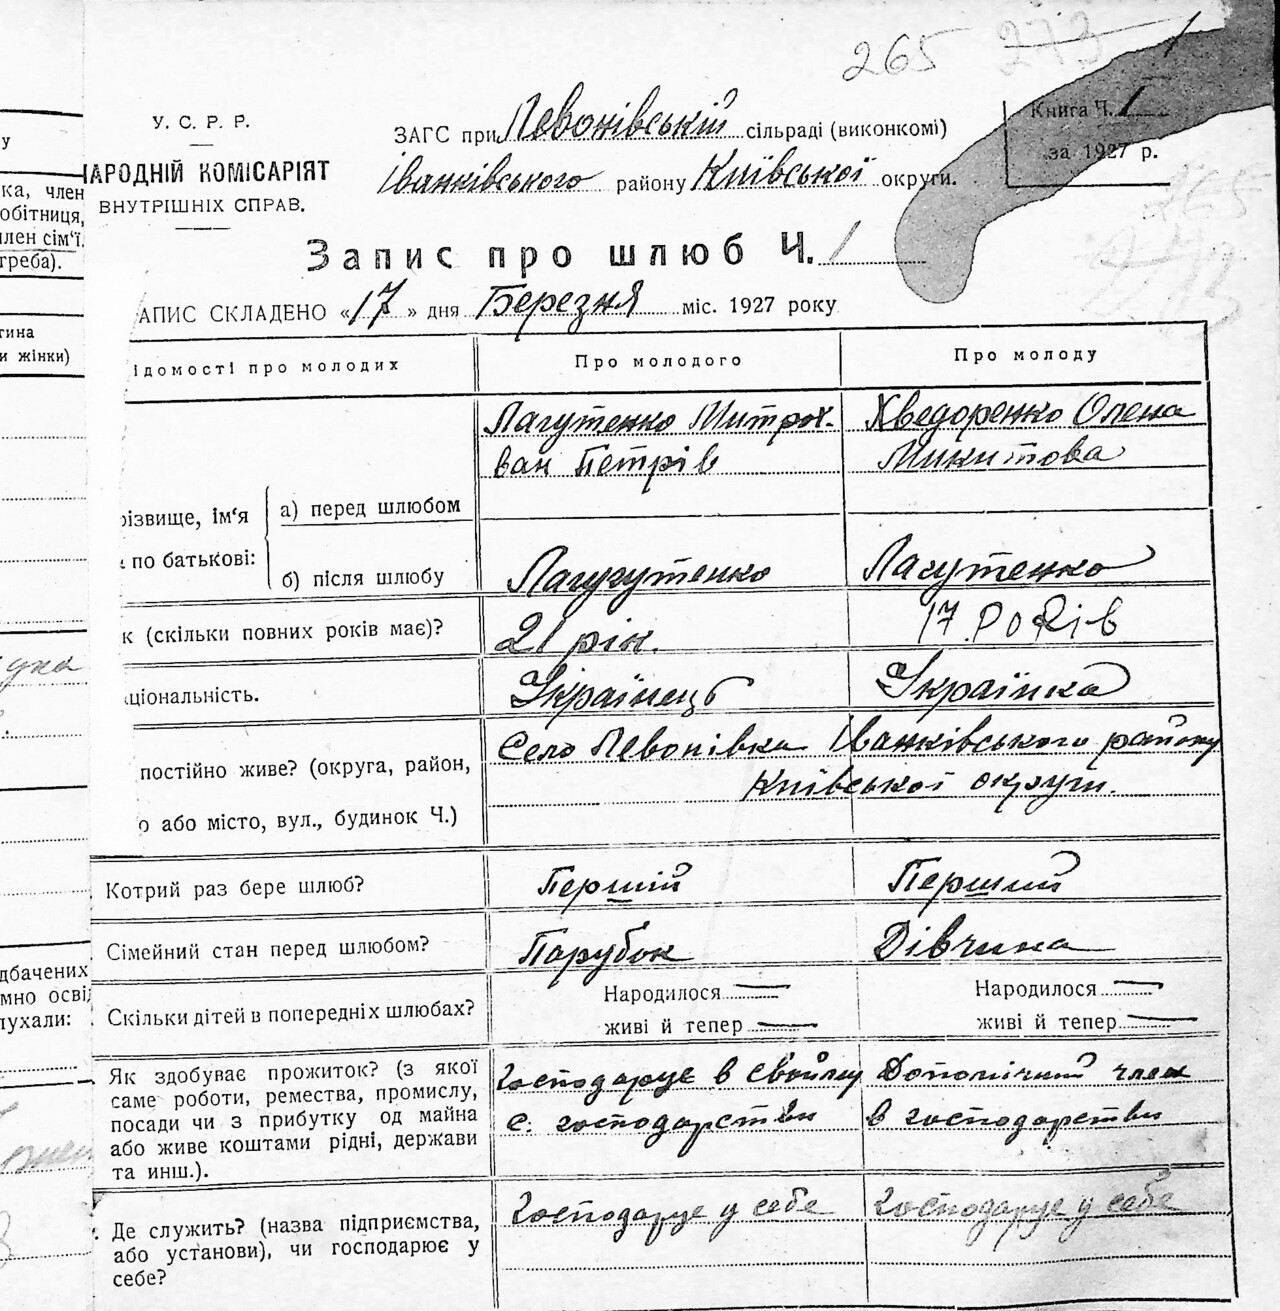 265 273
У. С. Р. Р.
НАРОДНІЙ КОМІСАРІЯТ
ВНУТРІШНІХ СПРАВ.
ЗАГС при Левонівській сільраді (виконкомі)
Іванківського району Київської округи.
Книга Ч. 1
за 1927 р.
265
Запис про шлюб Ч. 1
АПИС СКЛАДЕНО «17» дня Березня міс. 1927 року
ідомості про молодих
Про молодого
Про молоду
різвище, ім'я
по батькові:
а) перед шлюбом
Лагутенко Митрох-
ван Петрів
Хведоренко Олена
Микитова
б) після шлюбу
Лагугутенко
Лагутенко
к (скільки повних років має)?
21 рік.
17 РОКіВ
аціональність.
Українець
Українка
постійно живе? (округа, район,
о або місто, вул., будинок Ч.)
Село Левонівка Іванківського району
Київської округи.
Котрий раз бере шлюб?
Першій
Перший
Сімейний стан перед шлюбом?
Парубок
Дівчина
Скільки дітей в попередніх шлюбах?
Народилося —
живі й тепер —
Народилося —
живі й тепер —
Як здобуває прожиток? (з якої
саме роботи, ремества, промислу,
посади чи з прибутку од майна
або живе коштами рідні, держави
та инш.).
Господарує в свойму
с. господарстви
Допомічний член
в господарстви
Де служить? (назва підприємства,
або установи), чи господарює у
себе?
Господарує у себе
Господарує у себе
у
ка, член
обітниця,
член сім'ї,
греба).
тина
и жінки)
дбачених
мно осві
лухали: